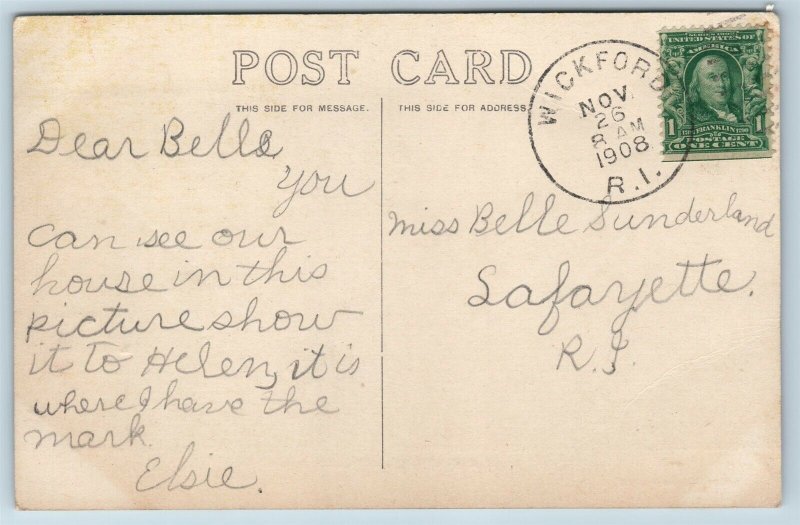 POST CARD
THIS SIDE FOR MESSAGE.
THIS SIDE FOR ADDRESS.
WICKFORD
NOV.
26
8 AM
1908
R.I.
SERIES 1902
UNITED STATES OF
AMERICA
1 FRANKLIN 1
POSTAGE
ONE CENT
Dear Belle,
You
can see our
house in this
picture show
it to Helen, it is
where I have the
mark.
Elsie.
Miss Belle Sunderland
Lafayette.
R.I.